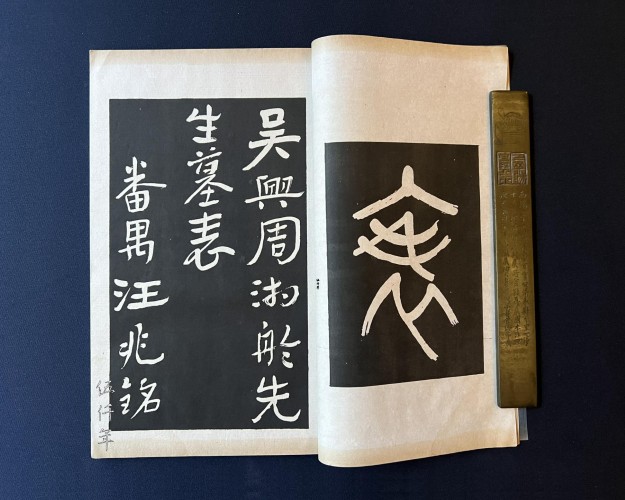 表
吳興周湘舲先
生墓表
番禺汪兆銘